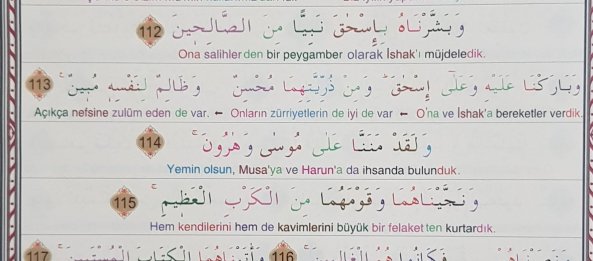 وَبَشَّرْنَاهُ بِإِسْحٰقَ نَبِيًّا مِنَ الصَّالِحٖينَ 112
Ona salihlerden bir peygamber olarak İshak'ı müjdeledik.
وَبَارَكْنَا عَلَيْهِ وَعَلٰٓى إِسْحٰقَ وَمِنْ ذُرِّيَّتِهِمَا مُحْسِنٌ وَظَالِمٌ لِنَفْسِهٖ مُبٖينٌ 113
Açıkça nefsine zulüm eden de var. ← Onların zürriyetlerin de iyi de var ← O'na ve İshak'a bereketler verdik.
وَلَقَدْ مَنَنَّا عَلٰى مُوسٰى وَهٰرُونَ 114
Yemin olsun, Musa'ya ve Harun'a da ihsanda bulunduk.
وَنَجَّيْنَاهُمَا وَقَوْمَهُمَا مِنَ الْكَرْبِ الْعَظٖيمِ 115
Hem kendilerini hem de kavimlerini büyük bir felaketten kurtardık.
وَنَصَرْنَاهُمْ فَكَانُوا هُمُ الْغَالِبٖينَ 116 وَاٰتَيْنَاهُمَا الْكِتَابَ الْمُسْتَبٖينَ 117